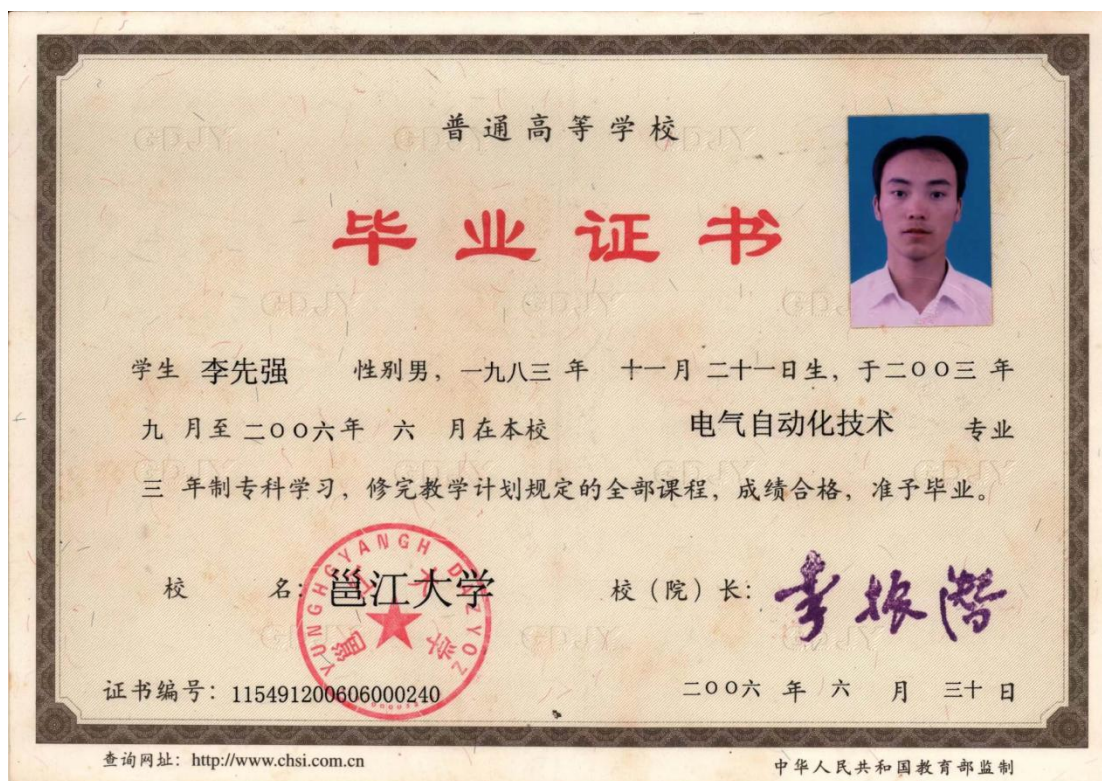 普通高等学校
毕业证书
学生 李先强 性别男，一九八三 年 十一月 二十一日生，于二〇〇三 年
九 月至 二〇〇六年 六 月在本校 电气自动化技术 专业
三 年制专科学习，修完教学计划规定的全部课程，成绩合格，准予毕业。
校 名：邕江大学 校（院）长：李振潜
YUNGHGYANGH DAZYOZ
邕江大学
证书编号：115491200606000240 二〇〇六 年 六 月 三十 日
查询网址：http://www.chsi.com.cn 中华人民共和国教育部监制